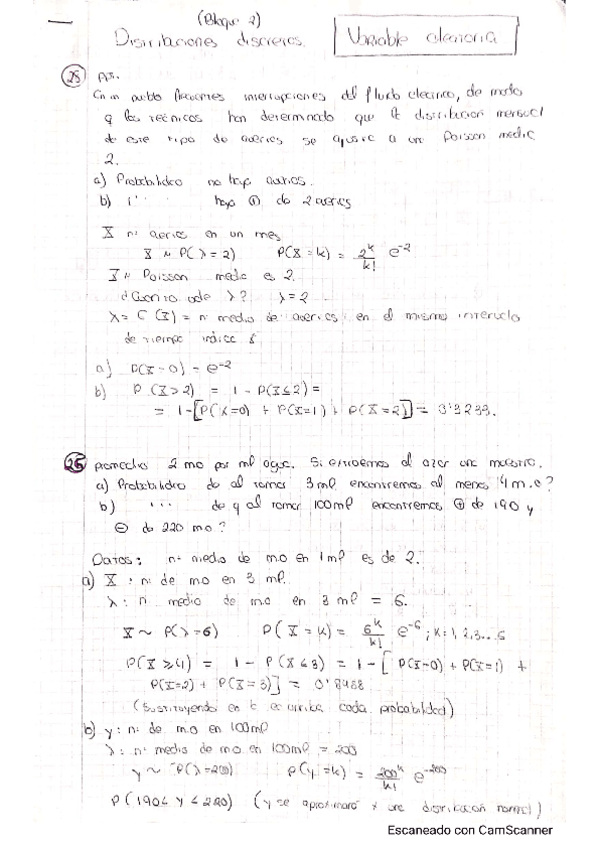 (Bloque 2)
Distribuciones discretas. Variable aleatoria
25
En un pueblo frecuentes interrupciones del fluido electrico, de modo
q los técnicos han determinado que la distribucion mensual
de este tipo de averias se ajusta a una Poisson media
2.
a) Probabilidad no haya averias.
b) haya ⊕ de 2 averias
X nº averias en un mes
X ~ P(λ=2) P(X=k) = 2^k/k! e^-2
X ~ Poisson media es 2.
¿Cuanto vale λ? λ=2
λ = E(X) = nº medio de averias en el mismo intervalo
de tiempo indica X
a) P(X=0) = e^-2
b) P(X>2) = 1 - P(X≤2) =
= 1-[P(X=0) + P(X=1) + P(X=2)] = 0'3233.
26 promedio 2 mo por ml agua. Si extraemos al azar una muestra.
a) Probabilidad de al tomar 3ml encontremos al menos 4 m.o?
b) ... de q al tomar 100ml encontremos ⊕ de 190 y
⊖ de 220 mo?
Datos: nº medio de m.o en 1ml es de 2.
a) X : nº de mo en 3 ml.
λ : nº medio de m.o en 3 ml = 6.
X ~ P(λ=6) P(X=k) = 6^k/k! e^-6 ; k=1,2,3...
P(X≥4) = 1 - P(X≤3) = 1-[P(X=0) + P(X=1) +
P(X=2) + P(X=3)] = 0'8488
(Sustituyendo en la ec arriba cada probabilidad)
b) y: nº de mo en 100ml
λ: nº medio de m.o en 100ml = 200
y ~ P(λ=200) P(y=k) = 200^k/k! e^-200
P(190< Y < 220) (y se aproximará x una distribución normal)
Escaneado con CamScanner